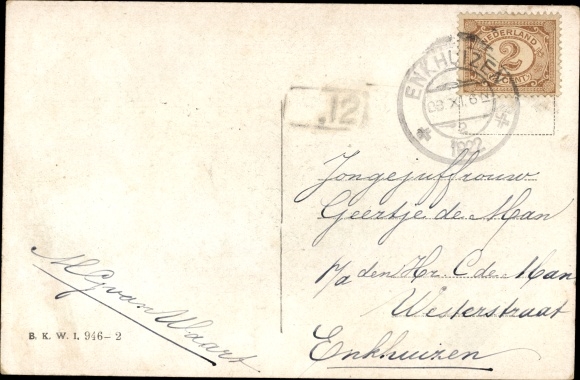 NEDERLAND
2
CENT
ENKHUIZEN
1922
.12
Jongejuffrouw
Geertje de Man
p/a den Hr. C de Man
Westerstraat
Enkhuizen
van Waart
B. K. W. I. 946-2